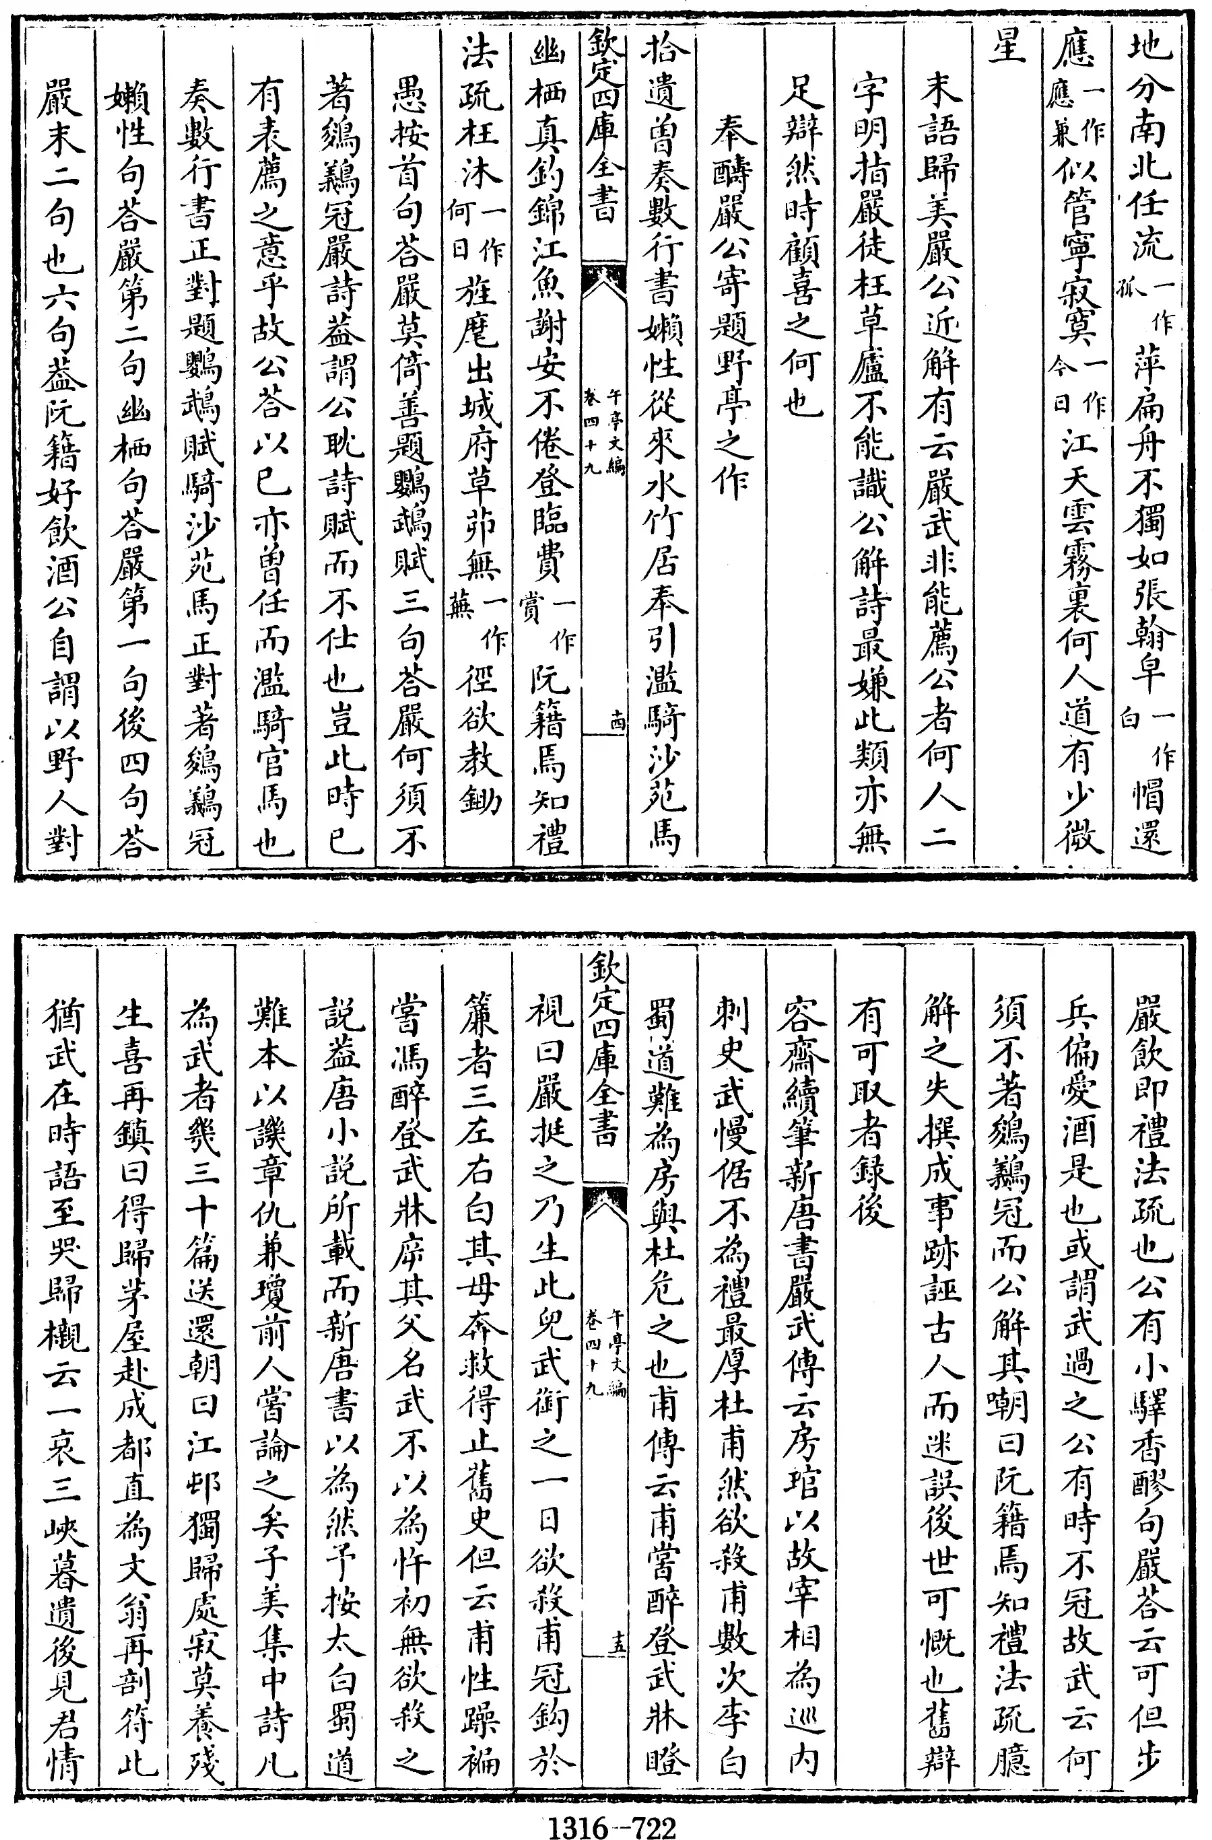 地分南北任流一作孤萍扁舟不獨如張翰皁一作白帽還
應一作應兼似管寧寂寞一作今日江天雲霧裏何人道有少微
星
末語歸美嚴公近解有云嚴武非能薦公者何人二
字明指嚴徒枉草廬不能識公解詩最嫌此類亦無
足辯然時顧喜之何也
奉酬嚴公寄題野亭之作
拾遺曾奏數行書嬾性從來水竹居奉引濫騎沙苑馬
欽定四庫全書 午亭文編 卷四十九 十四
幽栖真釣錦江魚謝安不倦登臨費一作賞阮籍焉知禮
法疏枉沐一作何日旌麾出城府草茆無一作蕪徑欲教鋤
愚按首句荅嚴莫倚善題鸚鵡賦三句荅嚴何須不
著鵕鸃冠嚴詩葢謂公耽詩賦而不仕也豈此時已
有表薦之意乎故公荅以己亦曾任而濫騎官馬也
奏數行書正對題鸚鵡賦騎沙苑馬正對著鵕鸃冠
嬾性句荅嚴第二句幽栖句荅嚴第一句後四句荅
嚴末二句也六句葢阮籍好飲酒公自謂以野人對
嚴飲即禮法疏也公有小驛香醪句嚴荅云可但步
兵偏愛酒是也或謂武過之公有時不冠故武云何
須不著鵕鸃冠而公解其嘲曰阮籍焉知禮法疏臆
解之失撰成事跡誣古人而迷誤後世可慨也舊辯
有可取者録後
容齋續筆新唐書嚴武傳云房琯以故宰相為巡内
刺史武慢倨不為禮最厚杜甫然欲殺甫數次李白
蜀道難為房與杜危之也甫傳云甫嘗醉登武牀瞪
欽定四庫全書 午亭文編 卷四十九 十五
視曰嚴挺之乃生此兒武銜之一日欲殺甫冠鈎於
簾者三左右白其母奔救得止舊史但云甫性躁褊
嘗馮醉登武牀斥其父名武不以為忤初無欲殺之
説葢唐小説所載而新唐書以為然予按太白蜀道
難本以譏章仇兼瓊前人嘗論之矣子美集中詩凡
為武者幾三十篇送還朝曰江邨獨歸處寂莫養殘
生喜再鎮曰得歸茅屋赴成都直為文翁再剖符此
猶武在時語至哭歸櫬云一哀三峽暮遺後見君情
1316-722